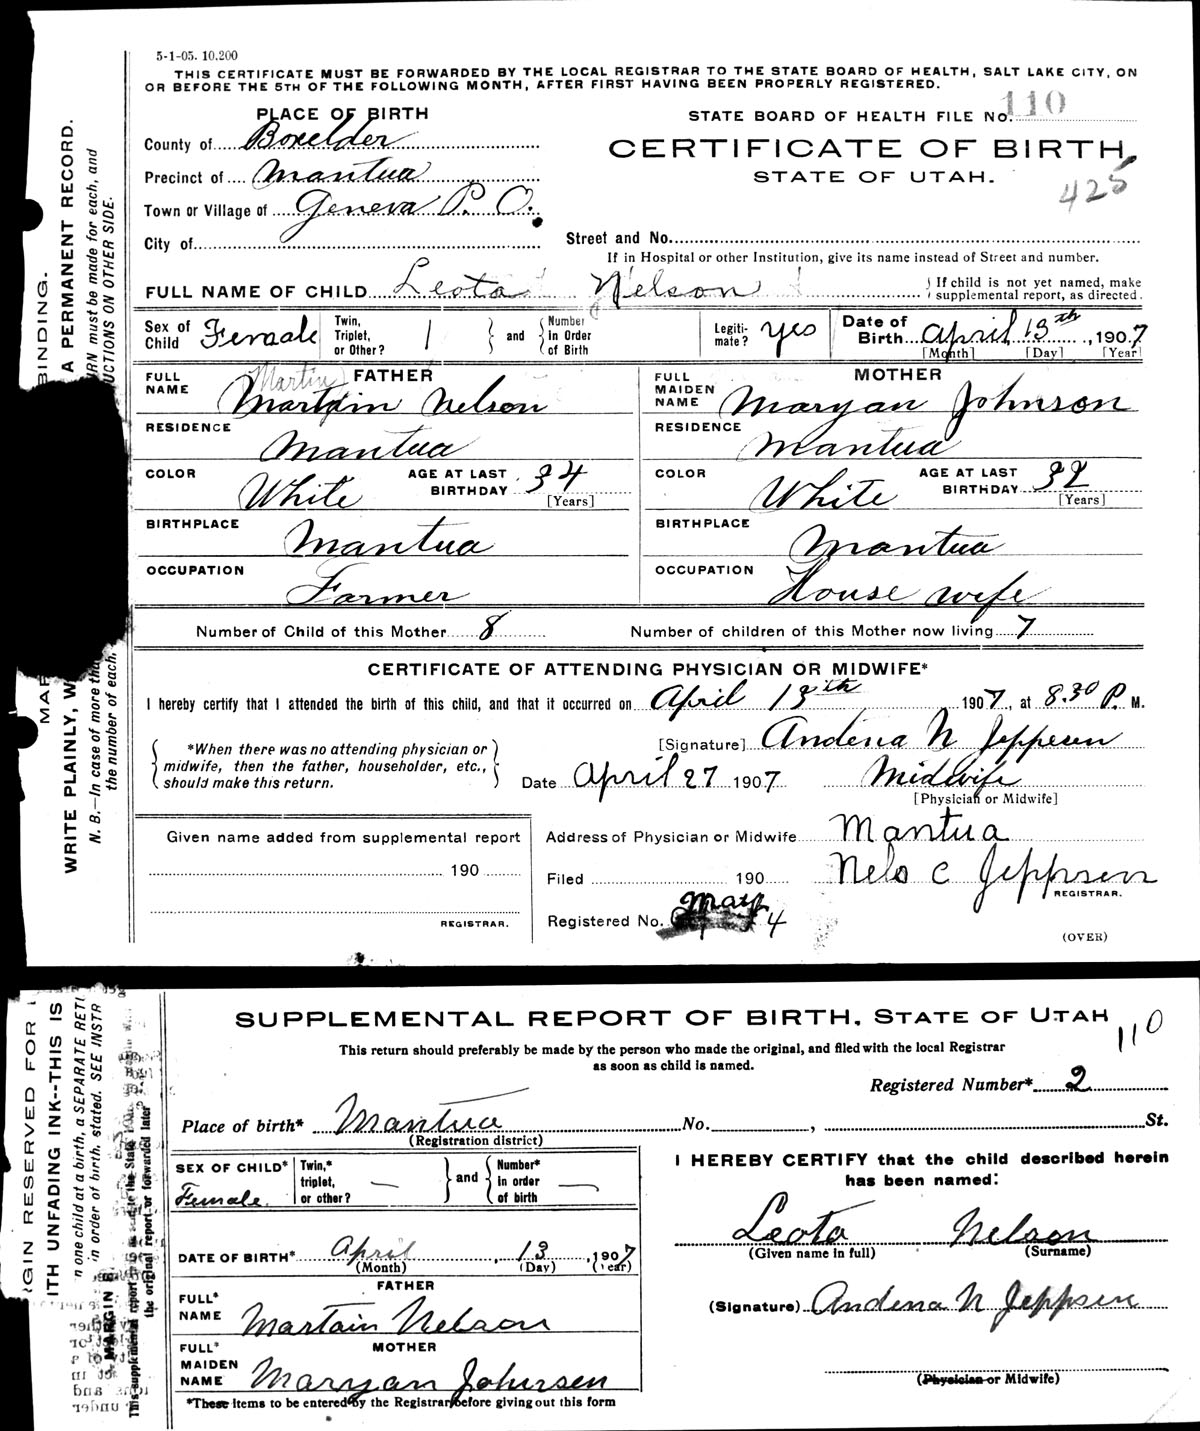 5-1-05. 10.200
THIS CERTIFICATE MUST BE FORWARDED BY THE LOCAL REGISTRAR TO THE STATE BOARD OF HEALTH, SALT LAKE CITY, ON
OR BEFORE THE 5TH OF THE FOLLOWING MONTH, AFTER FIRST HAVING BEEN PROPERLY REGISTERED.
PLACE OF BIRTH
STATE BOARD OF HEALTH FILE No. 110
County of Boxelder
CERTIFICATE OF BIRTH
Precinct of Mantua
STATE OF UTAH.
425
Town or Village of Geneva P. O.
City of
Street and No.
If in Hospital or other Institution, give its name instead of Street and number.
FULL NAME OF CHILD Leota Nelson
If child is not yet named, make
supplemental report, as directed.
Sex of Child Female
Twin, Triplet, or Other? 1
and
Number In Order of Birth
Legiti-mate? yes
Date of Birth April 13th, 1907
[Month] [Day] [Year]
FATHER
FULL NAME Martain Nelson
Martin
RESIDENCE Mantua
COLOR White
AGE AT LAST BIRTHDAY 34
[Years]
BIRTHPLACE Mantua
OCCUPATION Farmer
MOTHER
FULL MAIDEN NAME Maryan Johnson
RESIDENCE Mantua
COLOR White
AGE AT LAST BIRTHDAY 32
[Years]
BIRTHPLACE Mantua
OCCUPATION House wife
Number of Child of this Mother 8
Number of children of this Mother now living 7
CERTIFICATE OF ATTENDING PHYSICIAN OR MIDWIFE*
I hereby certify that I attended the birth of this child, and that it occurred on April 13th 1907, at 8.30 P. M.
*When there was no attending physician or
midwife, then the father, householder, etc.,
should make this return.
[Signature] Andena N Jeppsen
Date April 27 1907
Midwife
[Physician or Midwife]
Given name added from supplemental report
190
REGISTRAR.
Address of Physician or Midwife Mantua
Filed 190
Nels C Jeppsen
REGISTRAR.
Registered No. 4
May
(OVER)
BINDING.
A PERMANENT RECORD.
URN must be made for each, and
UCTIONS ON OTHER SIDE.
MAR
WRITE PLAINLY, W
N. B.—In case of more tha
the number of each,
SUPPLEMENTAL REPORT OF BIRTH, STATE OF UTAH
110
This return should preferably be made by the person who made the original, and filed with the local Registrar
as soon as child is named.
Registered Number* 2
Place of birth* Mantua No. , St.
(Registration district)
SEX OF CHILD* Female
Twin,* triplet, or other? —
and
Number* in order of birth —
DATE OF BIRTH* April, 13, 1907
(Month) (Day) (Year)
FATHER
FULL* NAME Martain Nelson
MOTHER
FULL* MAIDEN NAME Maryan Johnsen
*These items to be entered by the Registrar before giving out this form
I HEREBY CERTIFY that the child described herein
has been named:
Leota Nelson
(Given name in full) (Surname)
(Signature) Andena N Jeppsen
(Physician or Midwife)
RGIN RESERVED FOR
ITH UNFADING INK--THIS IS
n one child at a birth, a SEPARATE RETU
in order of birth, stated. SEE INSTR
the original report or forwarded later